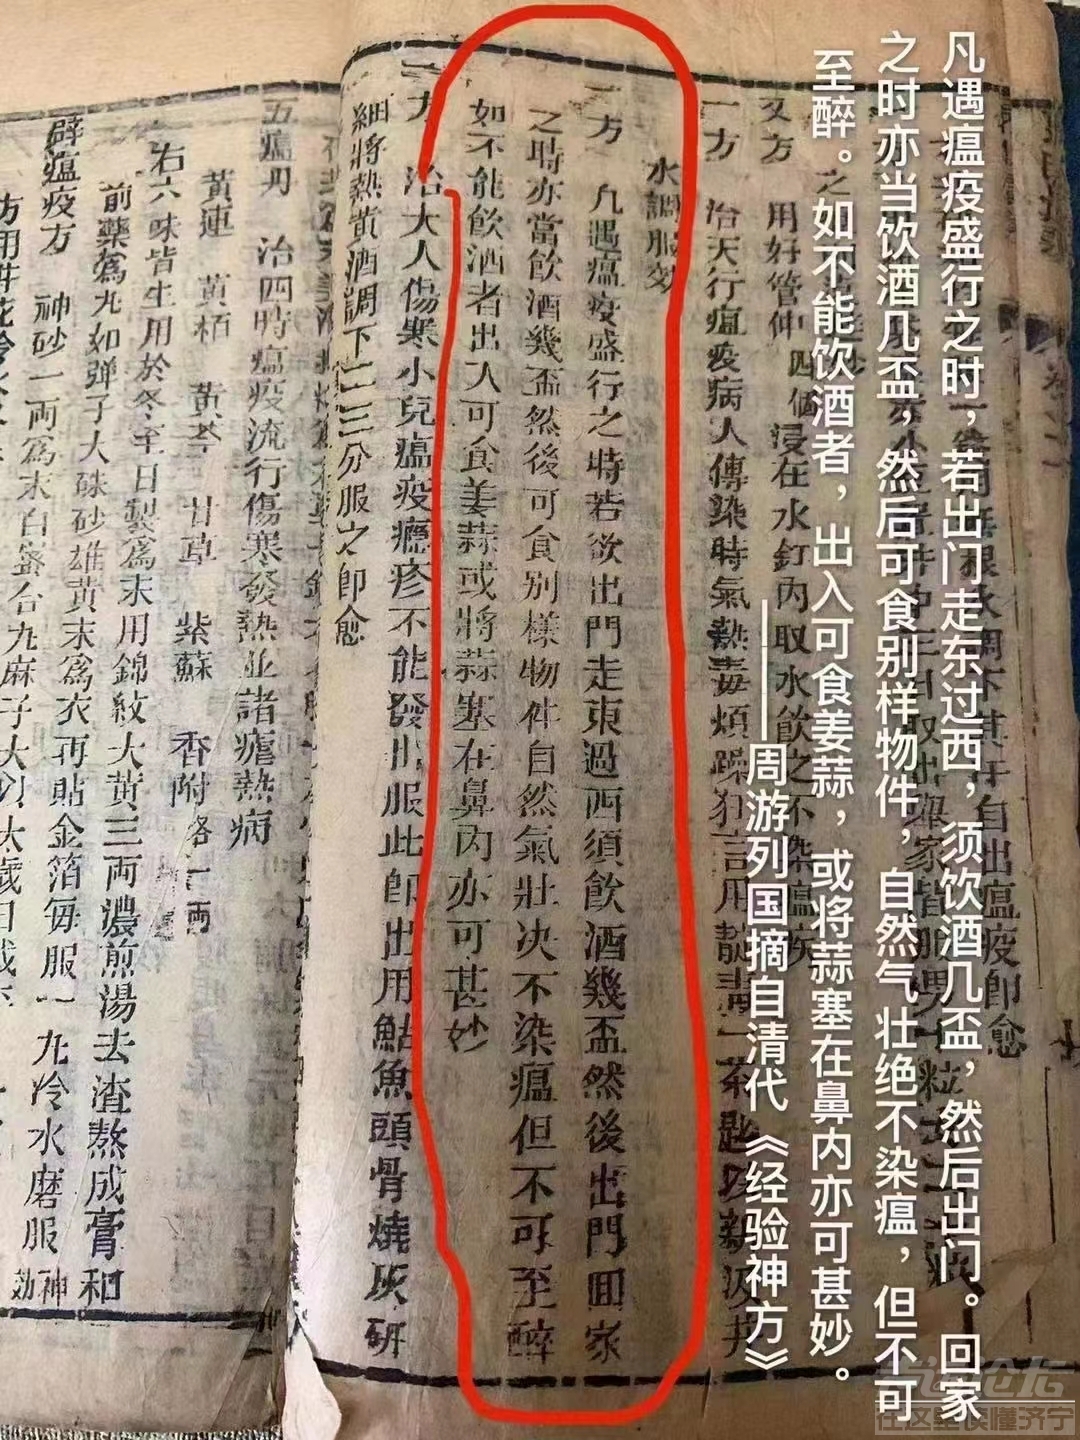 凡遇瘟疫盛行之时，若出门走东过西，须饮酒几盃，然后出门。回家
之时亦当饮酒几盃，然后可食别样物件，自然气壮绝不染瘟，但不可
至醉。之如不能饮酒者，出入可食姜蒜，或将蒜塞在鼻内亦可甚妙。
——周游列国摘自清代《经验神方》
又方 用好管仲四個浸在水缸內取水飲之不染瘟疾
一方 治天行瘟疫病人傳染時氣熱毒煩躁狂言用靛青一茶匙
水調服効
一方 凡遇瘟疫盛行之時若欲出門走東過西須飲酒幾盃然後出門回家
之時亦當飲酒幾盃然後可食别樣物件自然氣壯决不染瘟但不可至醉
如不能飲酒者出入可食姜蒜或將蒜塞在鼻內亦可甚妙
一方 治大人傷寒小兒瘟疫癮疹不能發出服此即出用鮎魚頭骨燒灰研
細將熱黃酒調下二三分服之即愈
五瘟丹 治四時瘟疫流行傷寒發熱並諸瘧熱病
黃連 黃栢 黃芩 甘草 紫蘇 香附各一兩
右六味皆生用於冬至日製爲末用錦紋大黃三兩濃煎湯去渣熬成膏和
前藥為丸如弹子大硃砂雄黃末爲衣再貼金箔每服一丸冷水磨服神効
辟瘟疫方 神砂一兩爲末白蜜合丸麻子大以太歲日
在这里读懂济宁